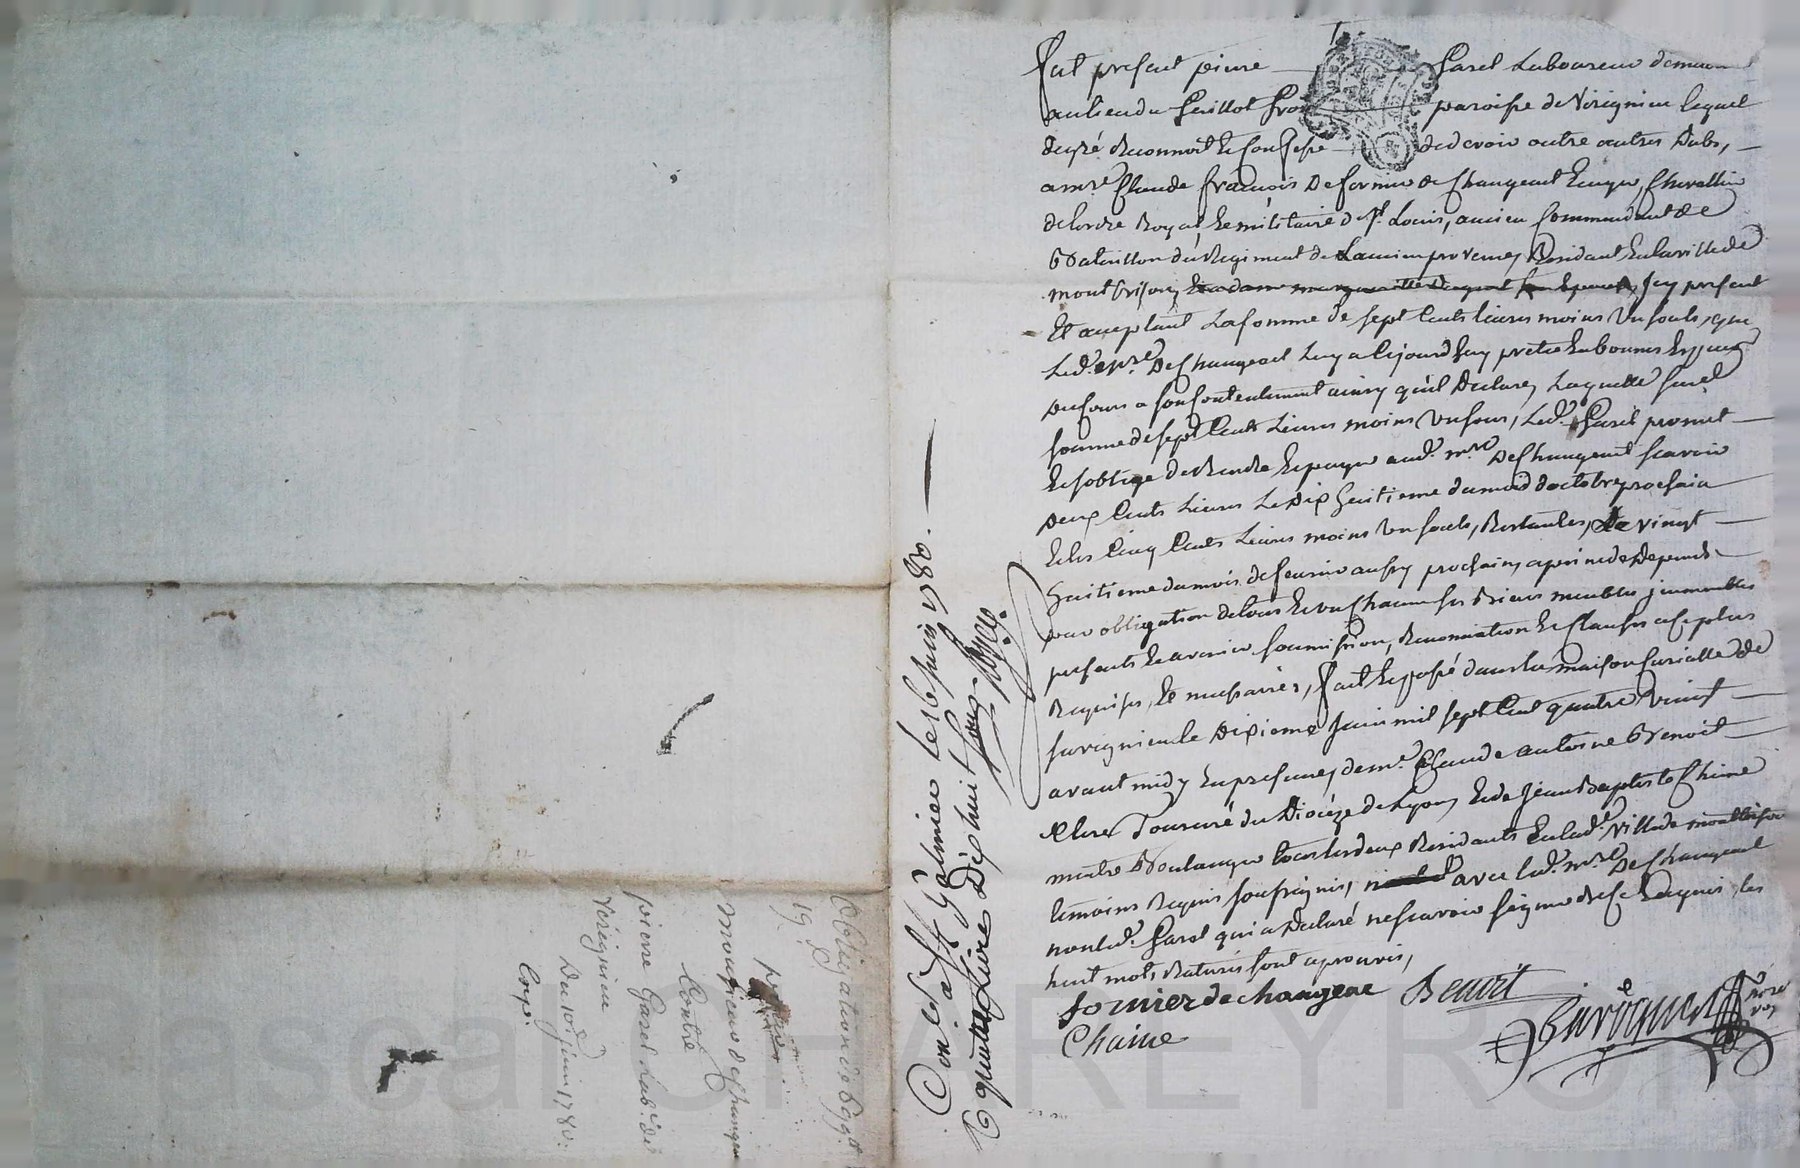 fut present pierre Garel Laboureur demeurant
au lieu du Guillot paroisse de Verignieu lequel
de gré Reconnoit & Confesse de devoir outre autres Dubs,
a mr. Claude françois De fornier de Changeac Ecuyer, Chevallier
de l'ordre Royal & militaire de st. Louis, ancien Commandant de
Bataillon du Regiment de Résidant En la ville de
montbrison, Icy present
Et aceptant La somme de sept Cents livres moins Un souls, que
Led. mr. De Changeac Luy a Cejourdhuy pretée En bonnes Especes
Du Cours a son Contentement ainsy qu'il Declare, Laquelle susd.
somme de sept Cents Livres moins Un sous, Led. Garel promet
& s'oblige de Rendre & payer aud. mr. De Changeant scavoir
Deux Cents Livres Le Dix huitieme du mois d'octobre prochain
& les Cinq Cents Livres moins Un souls, Restantes, Le vingt
huitieme du mois de fevrier aussy prochain, a peine de Depends
par obligation de tous & un Chacun ses Biens meubles immeubles
presents & avenir soumission, Renonciation & Clauses a ce plus
Requises, & necessaires, fait & passé dans la maison Curialle de
Verignieu le Dixieme Juin mil sept Cent quatre vingt
avant midy En presence, de mr. Claude antoine Benoit
Clerc Tonsuré du Diocèze de Lyon, & de Jean Baptiste Chaine
maitre Boulanger touts les deux Residants En lad. Ville de montbrison
temoins Requis soussignés, avec led. mr. De Changeant
non led. Garel qui a Declaré ne scavoir signer de ce Requis, les
huit mots Raturés sont aprouvés,
fornier de changeac Benoit
Chaine
Con. lé a st. Galmier le 16 Juin 1780.
Quatre Livre Dix huit sous
Obligation de 699#
19 s
pour
monsieur de Changeac
Contre
pierre Garel Lab. de
Verignieu
Du 10e Juin 1780.
Copie.
Pascal CHAREYRON